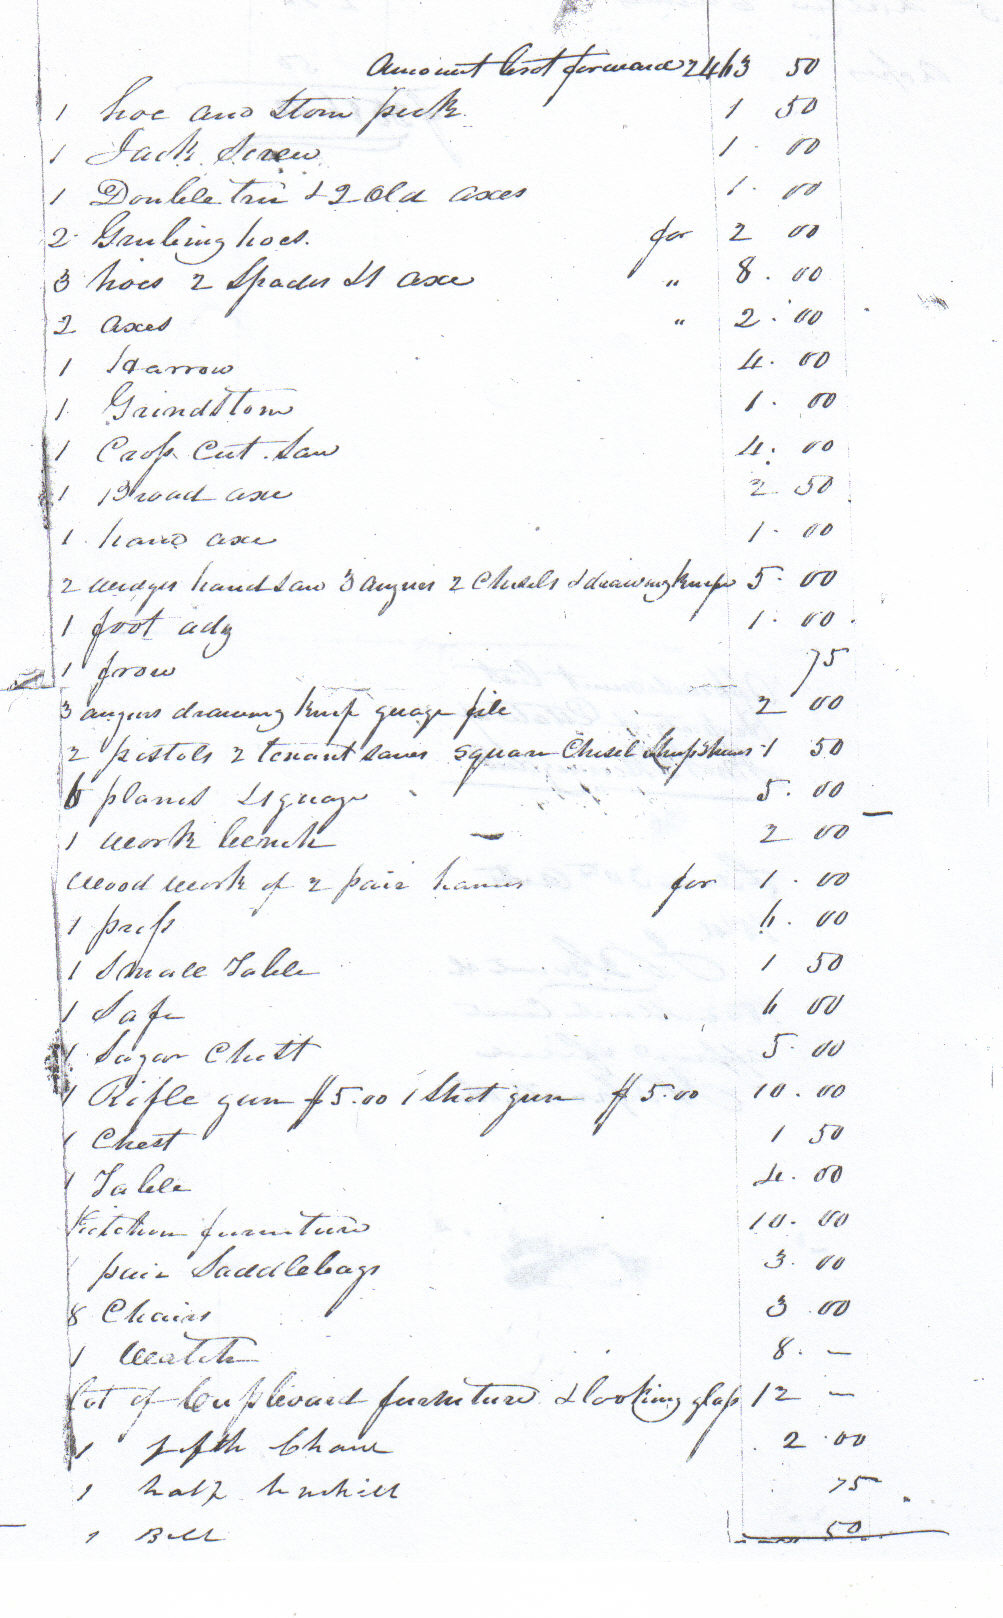 Amount brot forward 2463 50
1 hoe and Stone pick 1 50
1 Jack Screw 1. 00
1 Double tree & 2 Old axes 1. 00
2 Grubing hoes. for 2 00
3 hoes 2 Spades & 1 axe " 8. 00
2 axes " 2. 00
1 Harrow 4. 00
1 Grindstone 1. 00
1 Cross Cut Saw 4. 00
1 Broad axe 2 50
1 hand axe 1. 00
2 wedges hand Saw 3 augers 2 Chisels & drawing knife 5. 00
1 foot adz 1. 00
1 frow 75
3 augurs drawing knife guage file 2 00
2 pistols 2 tenant saws square Chisel Shears 1 50
6 planes & 1 guage 5. 00
1 work bench 2 00
Wood work of 2 pair hames for 1. 00
1 press 6. 00
1 Small Table 1 50
1 Safe 6 00
1 Sugar Chest 5. 00
1 Rifle gun $5.00 1 Shot gun $5.00 10. 00
1 Chest 1 50
1 Table 4. 00
Kitchen furniture 10. 00
pair Saddlebags 3. 00
8 Chairs 3. 00
1 Watch 8. —
Lot of Cupboard furniture & looking glass 12 —
1 fifth Chane 2. 00
1 half bushell 75
1 Bell 50